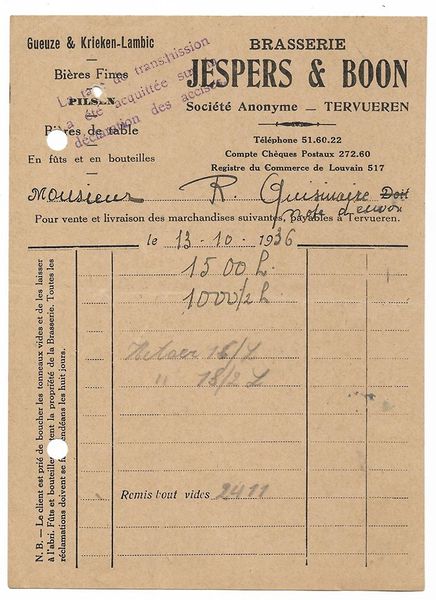 Gueuze & Krieken-Lambic
Bières Fines
PILSEN
Bières de table
En fûts et en bouteilles
La taxe de transmission
a été acquittée sur la
déclaration des accises
BRASSERIE
JESPERS & BOON
Société Anonyme — TERVUEREN
Téléphone 51.60.22
Compte Chèques Postaux 272.60
Registre du Commerce de Louvain 517
Monsieur R. Quisinaire Doit
note d'envoi
Pour vente et livraison des marchandises suivantes, payables à Tervueren.
le 13-10-1936
1500 L
1000/2 L
16/L
" 18/2 L
Remis bout vides 2411
N. B. — Le client est prié de boucher les tonneaux vides et de les laisser
à l'abri. Fûts et bouteilles tent la propriété de la Brasserie. Toutes les
réclamations doivent se f endéans les huit jours.